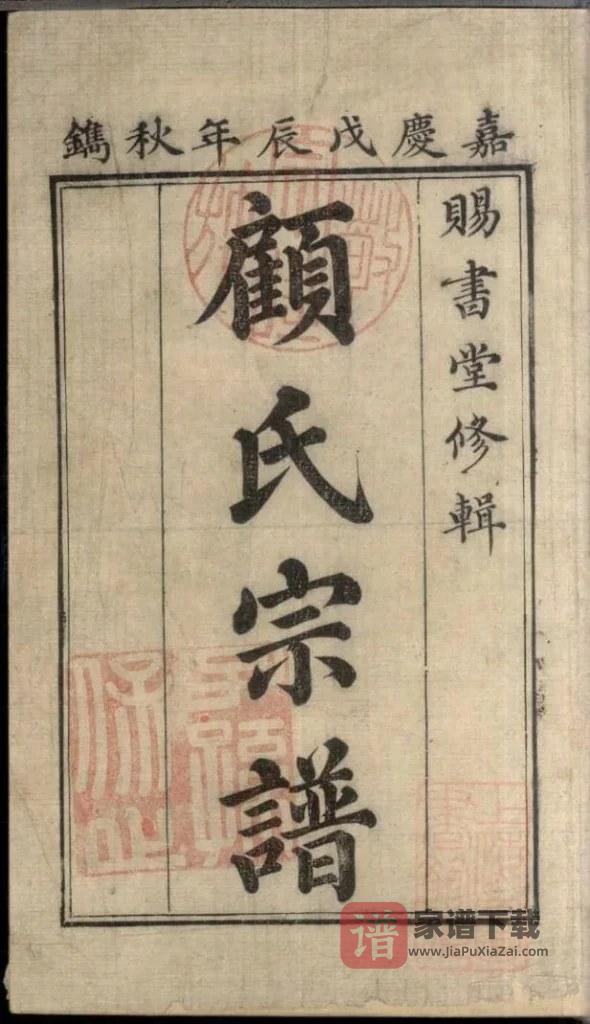 嘉慶戊辰年秋鐫
賜書堂修輯
顧氏宗譜
谱
家谱下载
www.JiaPuXiaZai.com